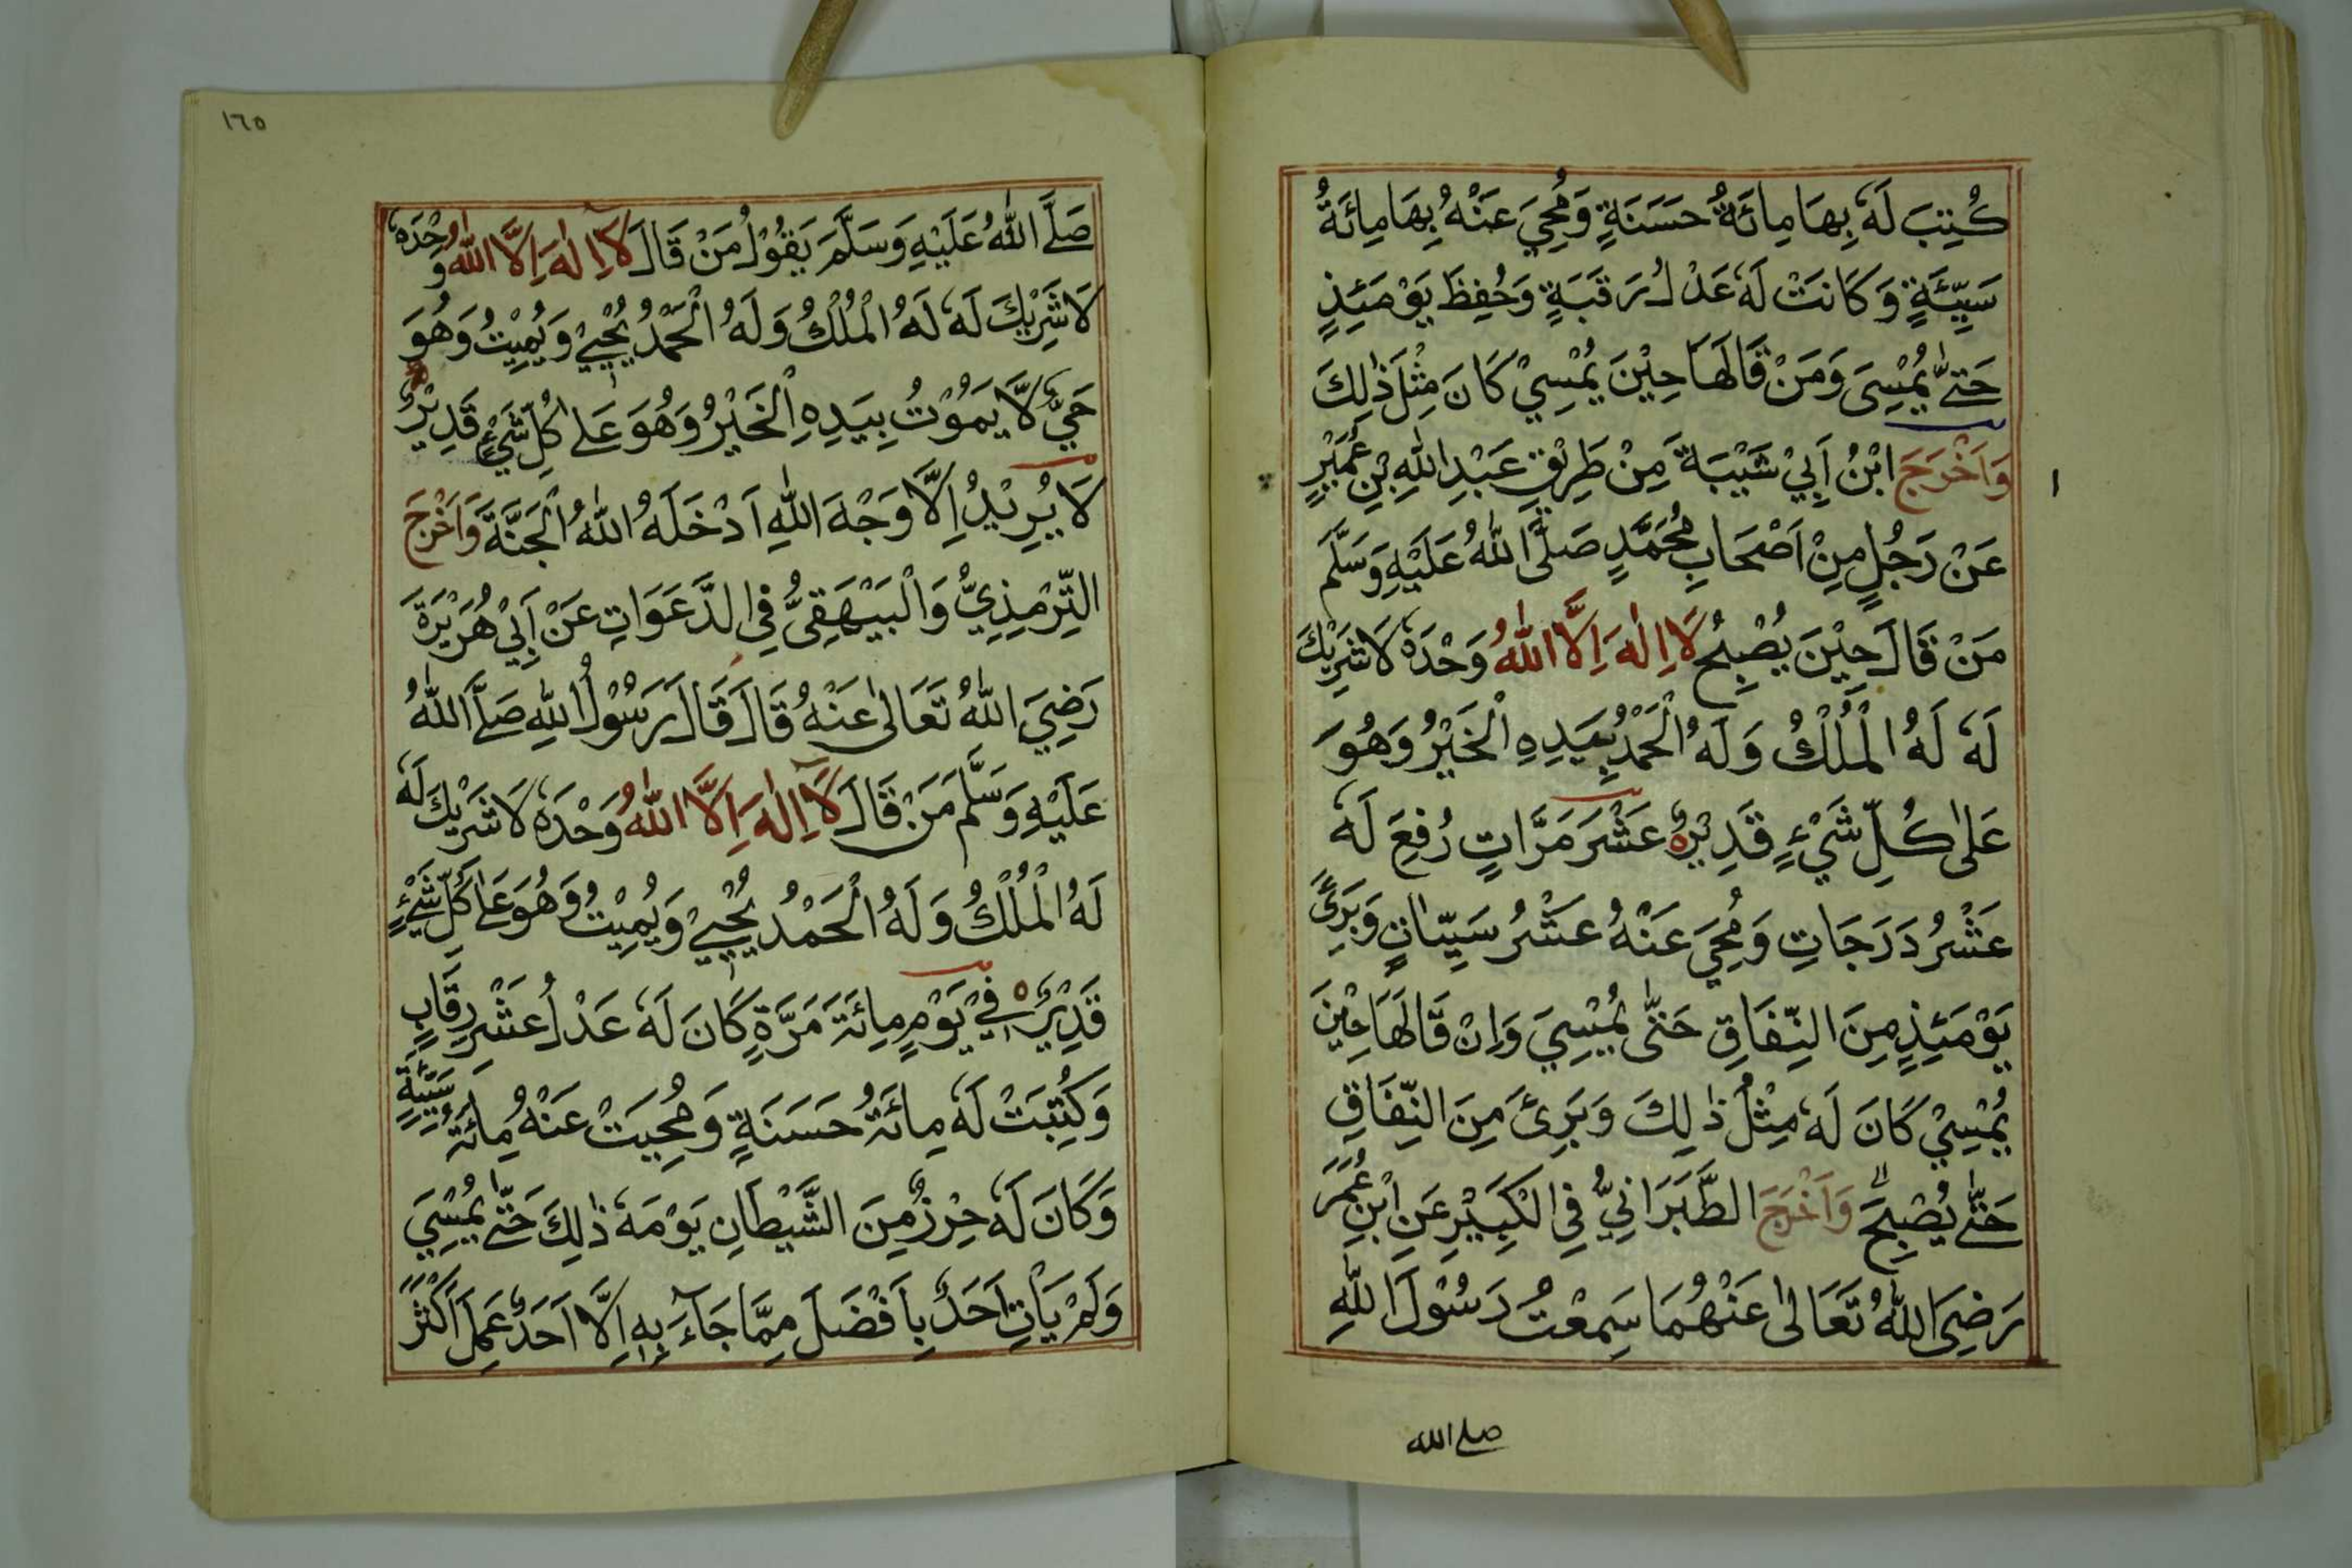 كُتِبَ لَهٗ بِهَا مِائَةُ حَسَنَةٍ وَمُحِيَ عَنْهُ بِهَا مِائَةُ
سَيِّئَةٍ وَكَانَتْ لَهٗ عَدْلُ رَقَبَةٍ وَحُفِظَ يَوْمَئِذٍ
حَتّٰى يُمْسِىَ وَمَنْ قَالَهَا حِيْنَ يُمْسِيْ كَانَ مِثْلَ ذٰلِكَ
وَاَخْرَجَ ابْنُ اَبِيْ شَيْبَةَ مِنْ طَرِيْقِ عَبْدِ اللّٰهِ بْنِ عُمَيْرٍ
١
عَنْ رَجُلٍ مِنْ اَصْحَابِ مُحَمَّدٍ صَلَّى اللّٰهُ عَلَيْهِ وَسَلَّم
مَنْ قَالَ حِيْنَ يُصْبِحُ لَا اِلٰهَ اِلَّا اللّٰهُ وَحْدَهٗ لَا شَرِيْكَ
لَهٗ لَهُ الْمُلْكُ وَلَهُ الْحَمْدُ بِيَدِهِ الْخَيْرُ وَهُوَ
عَلٰى كُلِّ شَيْءٍ قَدِيْرٌ عَشْرَ مَرَّاتٍ رُفِعَ لَهٗ
عَشْرُ دَرَجَاتٍ وَمُحِيَ عَنْهُ عَشْرُ سَيِّاٰتٍ وَبَرِئَ
يَوْمَئِذٍ مِنَ النِّفَاقِ حَتّٰى يُمْسِيَ وَاِنْ قَالَهَا حِيْنَ
يُمْسِيْ كَانَ لَهٗ مِثْلُ ذٰلِكَ وَبَرِئَ مِنَ النِّفَاقِ
حَتّٰى يُصْبِحَ وَاَخْرَجَ الطَّبَرَانِيُّ فِي الْكَبِيْرِ عَنِ ابْنِ عُمَرَ
رَضِيَ اللّٰهُ تَعَالٰى عَنْهُمَا سَمِعْتُ رَسُوْلَ اللّٰهِ
صلے الله
١٦٥
صَلَّے اللّٰهُ عَلَيْهِ وَسَلَّمَ يَقُوْلُ مَنْ قَالَ لَا اِلٰهَ اِلَّا اللّٰهُ وَحْدَهٗ
لَا شَرِيْكَ لَهٗ لَهُ الْمُلْكُ وَلَهُ الْحَمْدُ يُحْيِيْ وَيُمِيْتُ وَهُوَ
حَيٌّ لَّا يَمُوْتُ بِيَدِهِ الْخَيْرُ وَهُوَ عَلٰے كُلِّ شَيْءٍ قَدِيْرٌ
لَا يُرِيْدُ اِلَّا وَجْهَ اللّٰهِ اَدْخَلَهُ اللّٰهُ الْجَنَّةَ وَاَخْرَجَ
التِّرْمِذِيُّ وَالْبَيْهَقِيُّ فِي الدَّعَوَاتِ عَنْ اَبِيْ هُرَيْرَةَ
رَضِيَ اللّٰهُ تَعَالٰى عَنْهُ قَالَ قَالَ رَسُوْلُ اللّٰهِ صَلَّے اللّٰهُ
عَلَيْهِ وَسَلَّم مَنْ قَالَ لَا اِلٰهَ اِلَّا اللّٰهُ وَحْدَهٗ لَا شَرِيْكَ لَهٗ
لَهُ الْمُلْكُ وَلَهُ الْحَمْدُ يُحْيِيْ وَيُمِيْتُ وَهُوَ عَلٰے كُلِّ شَيْءٍ
قَدِيْرٌ فِيْ يَوْمٍ مِائَةَ مَرَّةٍ كَانَ لَهٗ عَدْلُ عَشْرِ رِقَابٍ
وَكُتِبَتْ لَهٗ مِائَةُ حَسَنَةٍ وَمُحِيَتْ عَنْهُ مِائَةُ سَيِّئَةٍ
وَكَانَ لَهٗ حِرْزٌ مِنَ الشَّيْطَانِ يَوْمَهٗ ذٰلِكَ حَتّٰے يُمْسِيَ
وَلَمْ يَاْتِ اَحَدٌ بِاَفْضَلَ مِمَّا جَآءَ بِهٖ اِلَّا اَحَدٌ عَمِلَ اَكْثَرَ